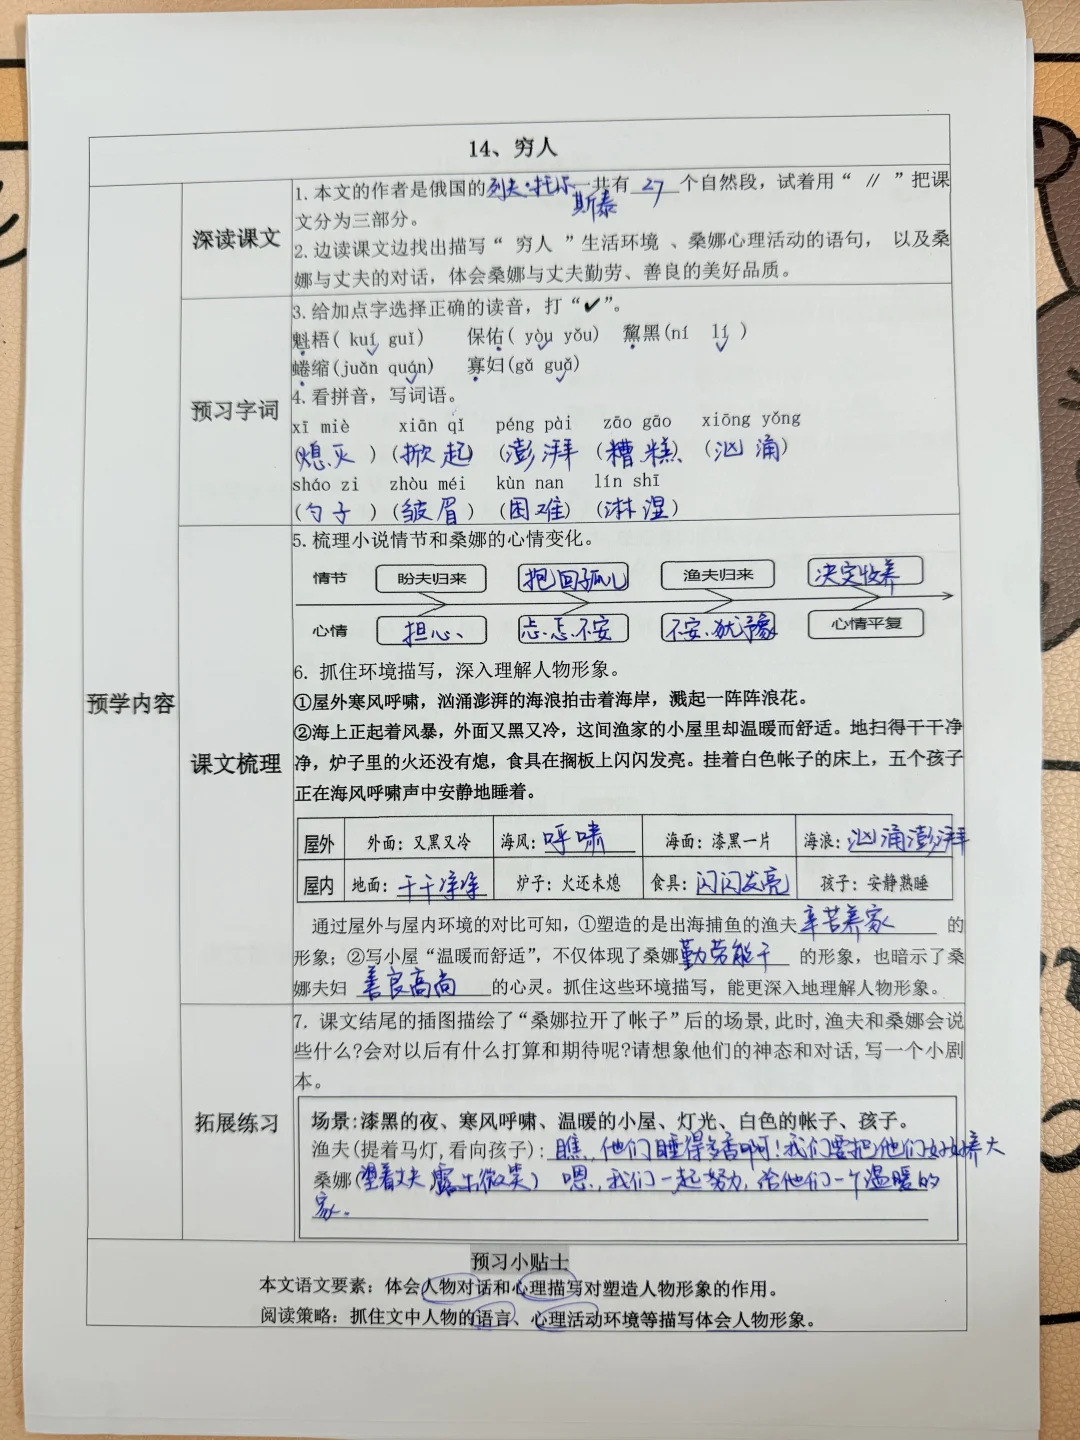 14、穷人
预学内容
深读课文
1. 本文的作者是俄国的列夫·托尔斯泰一共有 27 个自然段，试着用“ // ”把课
文分为三部分。
2. 边读课文边找出描写“ 穷人 ”生活环境 、桑娜心理活动的语句， 以及桑
娜与丈夫的对话，体会桑娜与丈夫勤劳、善良的美好品质。
预习字词
3. 给加点字选择正确的读音，打“✔”。
魁梧( kuí guǐ) 保佑( yòu yǒu) 黧黑(ní lí )
蜷缩(juǎn quán) 寡妇(gǎ guǎ)
4. 看拼音，写词语。
xī miè xiān qǐ péng pài zāo gāo xiōng yǒng
(熄灭 ) (掀起) (澎湃 (糟糕) (汹涌)
sháo zi zhòu méi kùn nan lín shī
(勺子 ) (皱眉 ) (困难) (淋湿)
课文梳理
5. 梳理小说情节和桑娜的心情变化。
情节 盼夫归来 抱回孤儿 渔夫归来 决定收养
心情 担心、 忐忑不安 不安、犹豫 心情平复
6. 抓住环境描写，深入理解人物形象。
①屋外寒风呼啸，汹涌澎湃的海浪拍击着海岸，溅起一阵阵浪花。
②海上正起着风暴，外面又黑又冷，这间渔家的小屋里却温暖而舒适。地扫得干干净
净，炉子里的火还没有熄，食具在搁板上闪闪发亮。挂着白色帐子的床上，五个孩子
正在海风呼啸声中安静地睡着。
屋外 外面：又黑又冷 海风：呼啸 海面：漆黑一片 海浪：汹涌澎湃
屋内 地面：干干净净 炉子：火还未熄 食具：闪闪发亮 孩子：安静熟睡
通过屋外与屋内环境的对比可知，①塑造的是出海捕鱼的渔夫辛苦养家 的
形象；②写小屋“温暖而舒适”，不仅体现了桑娜勤劳能干 的形象，也暗示了桑
娜夫妇 善良高尚 的心灵。抓住这些环境描写，能更深入地理解人物形象。
拓展练习
7. 课文结尾的插图描绘了“桑娜拉开了帐子”后的场景,此时,渔夫和桑娜会说
些什么?会对以后有什么打算和期待呢?请想象他们的神态和对话,写一个小剧
本。
场景:漆黑的夜、寒风呼啸、温暖的小屋、灯光、白色的帐子、孩子。
渔夫(提着马灯,看向孩子)：瞧，他们睡得多香啊！我们要把他们好好养大
桑娜(望着丈夫 露出微笑) 嗯，我们一起努力，给他们一个温暖的
家。
预习小贴士
本文语文要素：体会人物对话和心理描写对塑造人物形象的作用。
阅读策略：抓住文中人物的语言、心理活动环境等描写体会人物形象。